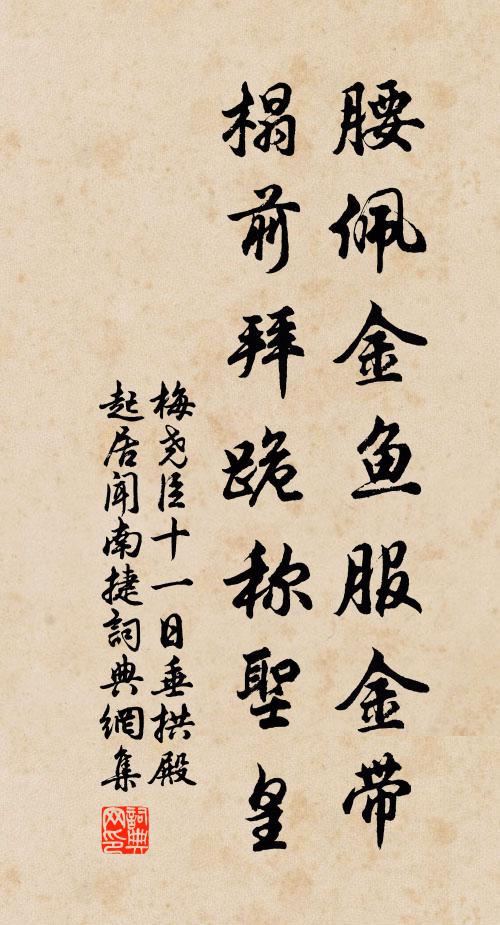 腰佩金鱼服金带
榻前拜跪称聖皇
梅尧臣十一日垂拱殿
起居闻南捷詞典網集
詞典网印